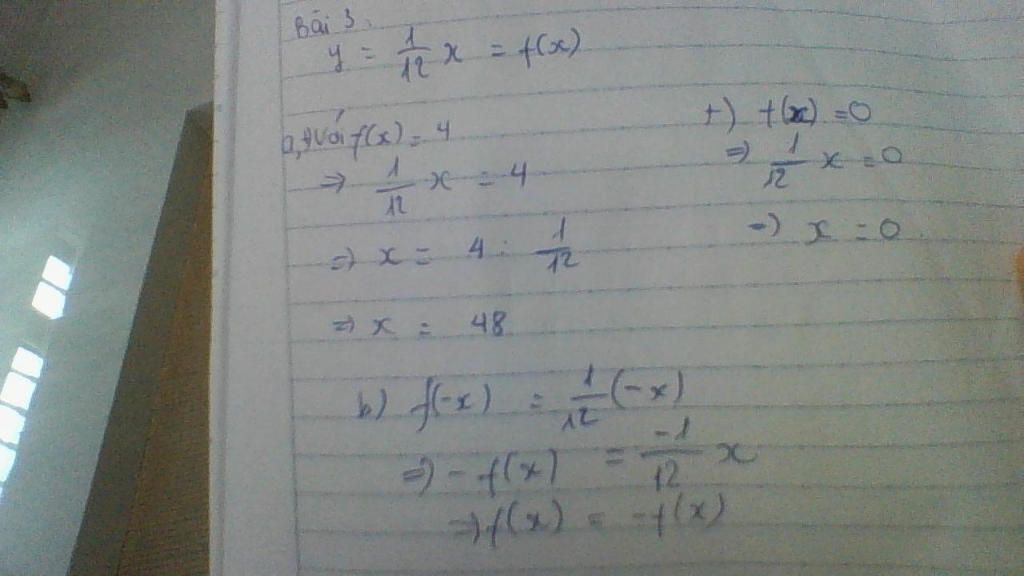 Bài 3.
y = 1/12 x = f(x)
a, +) Với f(x) = 4
=> 1/12 x = 4
=> x = 4 : 1/12
=> x = 48
+) f(x) = 0
=> 1/12 x = 0
=> x = 0
b) f(-x) = 1/12 (-x)
=> - f(x) = -1/12 x
=> f(x) = -f(x)